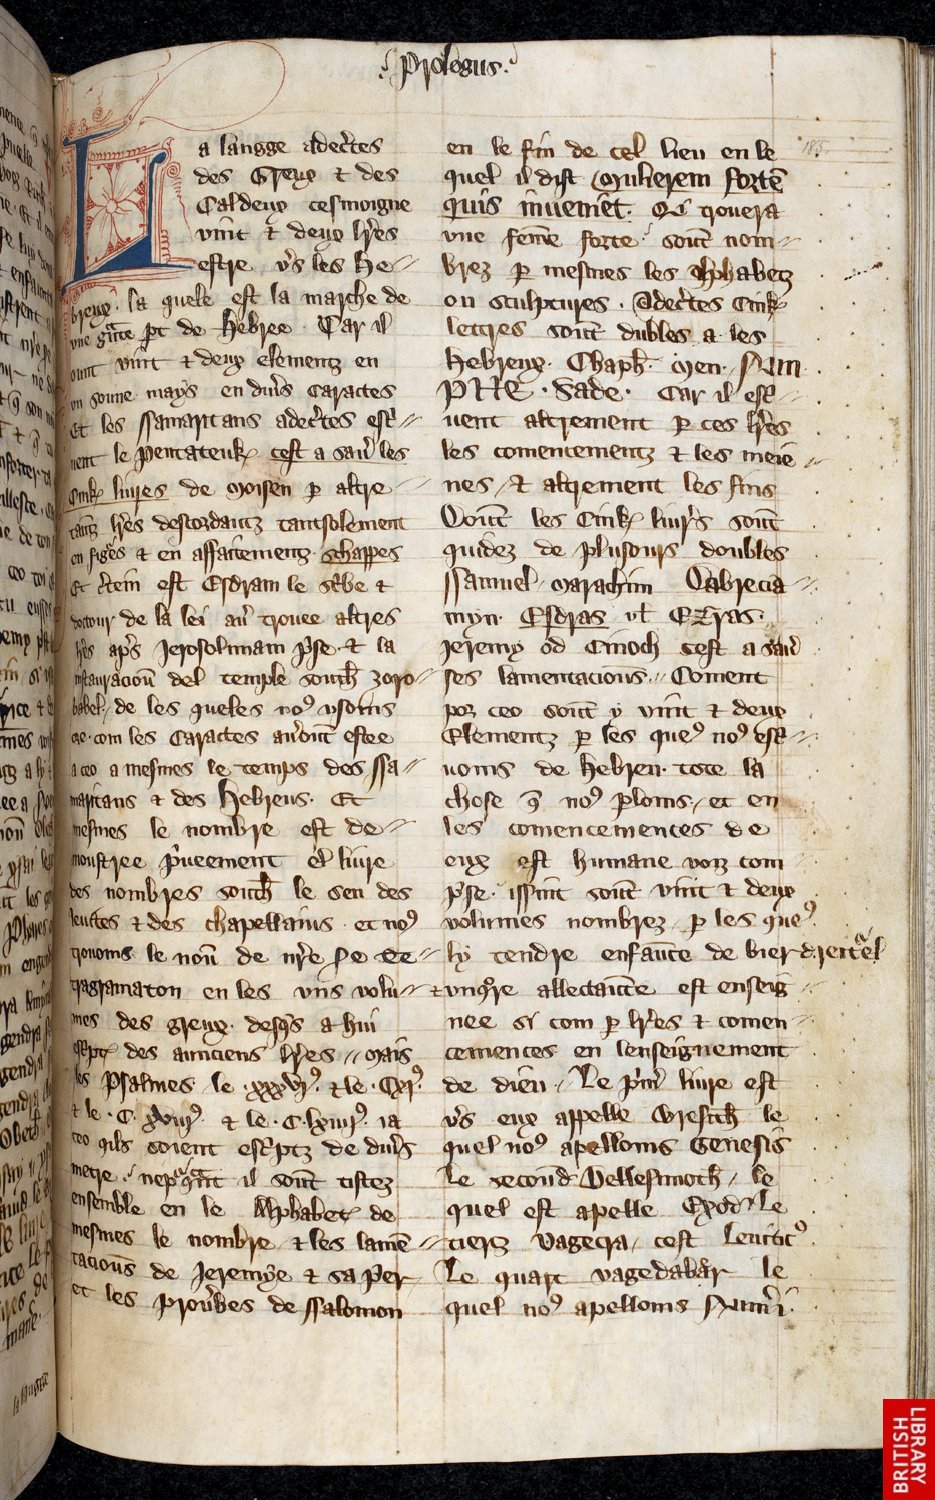 Prologus.
La langge adec̄tes
des Greux & des
Caldeux tesmoigne
vint & deux lr̄es
estre v̄s les he-
breux. la quele est la marche de
pt de hebree. Car il
ount vint & deux elementz en
un soune mays en div̄s caractes
Et les ssamaritans adec̄tes esc̄-
uent le Pentateuk cest a sav̄ les
Cink liures de Moisen p altre
tantz lr̄es descordantz tantsolement
en & en affaitementz. schappes
Et c̄tein est Esdram le sc̄be &
doctour de la lei av̄ trouee altres
lr̄es ap̄s Jerosolimam p̄se. & la
instauracioun del temple south zoro-
babel. de les queles no⁹ vsoms
ore. com les Caractes estee
a ceo a mesmes le temps des ssa-
maritans & des hebreus. Et
mesmes le nombre est de-
moustree p̄ueement el liure
des nombres south le sen des
leuites & des chapellains. et no⁹
trouoms le noun de nr̄e te-
tragramaton en les vns volu-
mes des greux. desq̄s a hui
des aunciens lr̄es. Mais
les Psalmes le xxxvj⁹. & le Cxj⁹.
& le .C. & le .C. ia
ceo qils soient esc̄ptz de div̄s
metre. il sount tistez
ensemble en le Alphabet de
mesmes le nombre. & les lamē-
tacious de Jeremye & sa per
et les prov̄bes de ssalomon
en le fin de cel lieu en le
quel il dist Mulierem fortē
quis inueniet. Qi trouera
vne femē forte. sount nom-
brez p mesmes les alphabetz
ou sculptures. Adec̄tes Cink
lettres sount dubles a les
hebreux. Chaph. Men. Nun
PHE. Sade. Car il esc̄-
uent altrement p ces lr̄es
les comencementz & les meie
nes, & altrement les fins
Dount les Cink liur̄s sount
quidez de plusours doubles
ssamuel. Marachim Dabrecia-
myn. Esdras vl̄ EZras.
Jeremy od Cinoch cest a sav̄
ses lamentacious. Coment
poz ceo sount y vint & deux
Elementz p les que⁹ no⁹ esc̄-
uoms de hebreu. tote la
chose q̄ no⁹ ploms. et en
les comencementes de
eux est humane voiz com
p̄se. issint sount vint & deux
volumes nombrez. p les que⁹
ly tendre enfaunce de bier dreit᷒el
& allectaunte est enseig
nee si com p lr̄es & comen-
cementes en lenseignement
de dieu. Le p̄m̄ liure est
v̄s eux appelle Bresith le
quel no⁹ apelloms Genesis
Le second Vellesmoth. le
quel est apelle Exod. Le
tiertz Vagecra. cest leuitic⁹
Le quart vagedabar le
quel no⁹ apelloms Num̄i.
185
BRITISH
LIBRARY